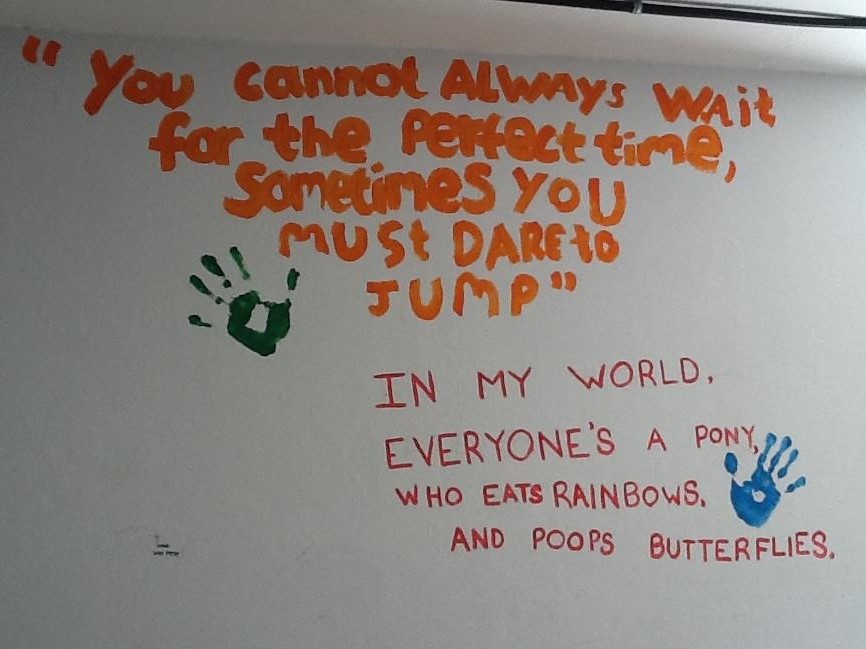 "You cannot ALWAYS WAit
for the Perfect time,
Sometimes YOU
MUSt DARE to
JUMP"
IN MY WORLD,
EVERYONE'S A PONY,
WHO EATS RAINBOWS,
AND POOPS BUTTERFLIES.